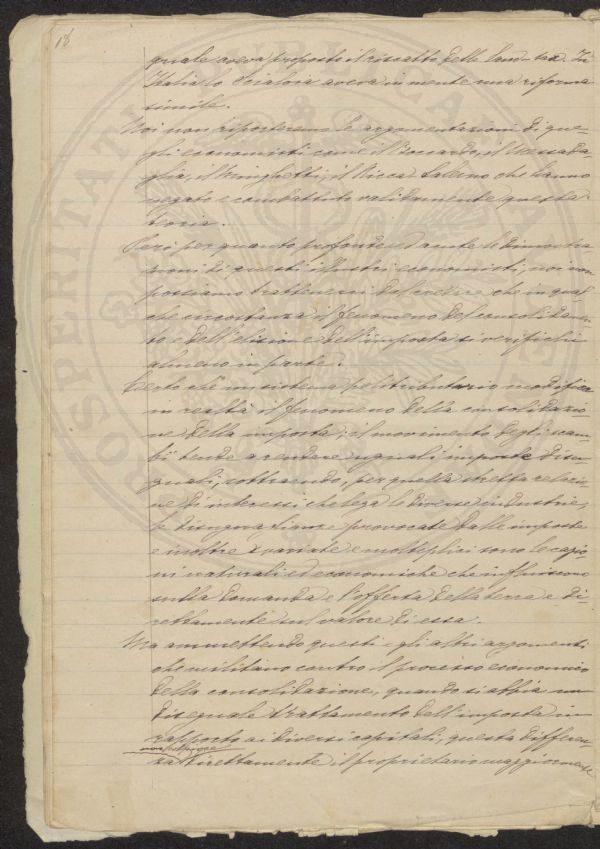 18
quale aveva proposto il riscatto della land-tax. In
Italia lo Scialoia aveva in mente una riforma
simile.
Noi non riporteremo le argomentazioni di que-
gli economisti come il Boccardo, il Messeda-
glia, il Minghetti, il Ricca Salerno che hanno
negato e combattuto validamente questa
teoria.
Però per quanto profonde ed acute le dimostra-
zioni di questi illustri economisti, noi non
possiamo trattenerci dal credere che in qual
che circostanza il fenomeno del consolidamen-
to e dell'elisione dell'imposta si verifichi
almeno in parte.
Certo che un sistema tributario modifica
in realtà il fenomeno della consolidazio-
ne della imposta; il movimento degli scam-
bî tende a rendere uguali imposte disu-
guali, sottraendo, per quella stretta relazio-
ne di interessi che lega le diverse industrie,
le disuguaglianze provocate dalle imposte
e inoltre svariate e molteplici sono le cagio
ni naturali ed economiche che influiscono
sulla domanda e l'offerta della terra e di-
rettamente sul valore di essa.
Ma ammettendo questi e gli altri argomenti
che militano contro il processo economico
della consolidazione, quando si abbia un
diseguale trattamento dell'imposta in
rapporto ai diversi capitali, questa differen-
za direttamente il proprietario maggiormente
PROSPERITATI PUBLICAE